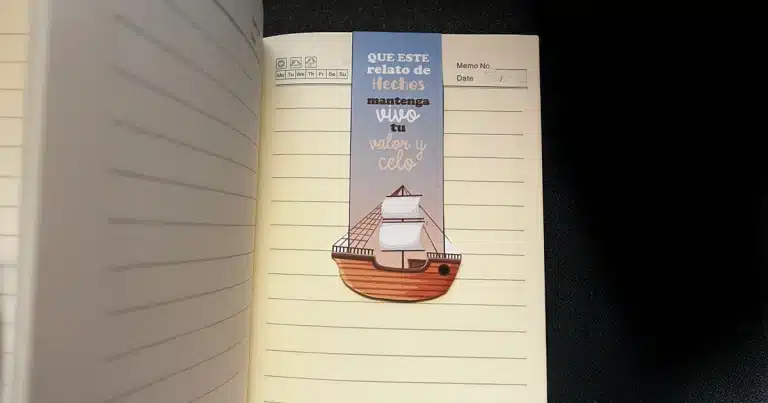 QUE ESTE
relato de
Hechos
mantenga
vivo
tu
valor y
celo
Memo No.
Date /
Mo Tu We Th Fr Sa Su